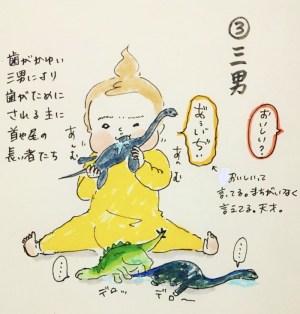 ③三男
歯がかゆい
三男により
歯がために
される主に
首や尾の
長い者たち
おいしい?
あぅいぢぃ
あーむ
あーむ
おいしいって
言ってる。まちがいなく
言えてる。天才。
デロッ
デロ〜